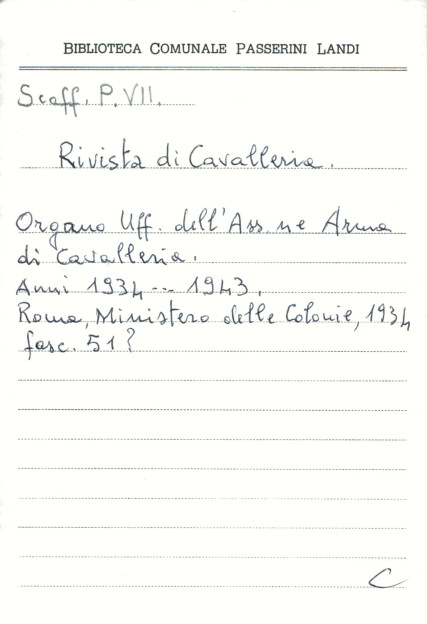 BIBLIOTECA COMUNALE PASSERINI LANDI
Scaff. P. VII.
Rivista di Cavalleria.
Organo Uff. dell'Ass.ne Arma
di Cavalleria.
Anni 1934 --- 1943.
Roma, Ministero delle Colonie, 1934
fasc. 51?
C